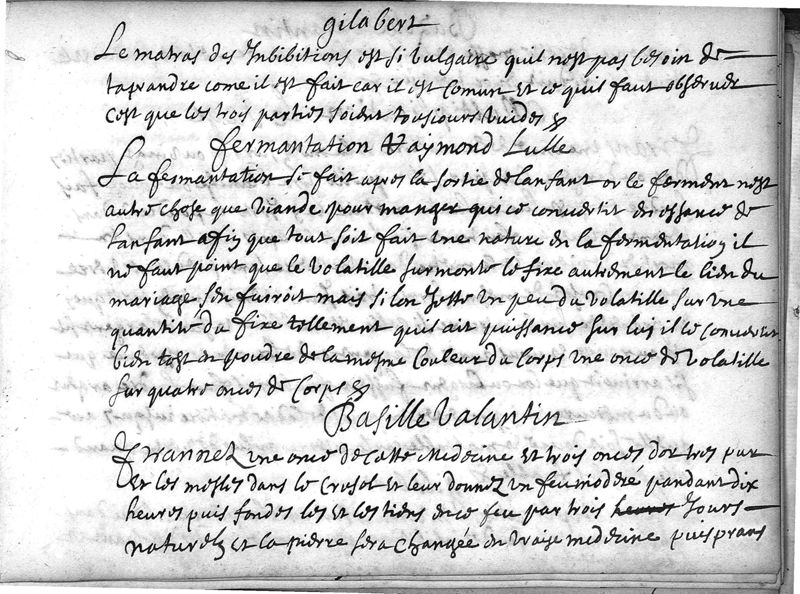 gilabert
Le matras des Inbibitions est si Vulgaire quil nest pas besoin de
taprandre come il est fait car il est Comun Et ce quis faut observer
cest que les trois parties soient tousiours vuides
fermantation Raymond Lulle
La fermantation se fait apres la sortie de lanfant or le ferment nest
autre chose que viande pour manger qui ce convertit en essance de
Lanfant affin que tout soit fait une nature en la fermentation il
ne faut point que le volatille surmonte le fixe autrement le lien du
mariage sen fuiroit mais si lon Jette un peu du volatille sur une
quantite du fixe tellement quis ait puissance sur luy il ce convertit
bien tost en poudre de la mesme Couleur du Corps une once de volatille
sur quatre onces de Corps
Basille Valantin
Prannez une once de cette Medecine Et trois onces dor tres pur
Et les mesles dans le Crusol Et leur donnez un feu modéré pandant dix
heures puis fondes les Et les tiens en ce feu par trois heures Jours
naturels Et la pierre sera Changée en vraise medecine puis prans